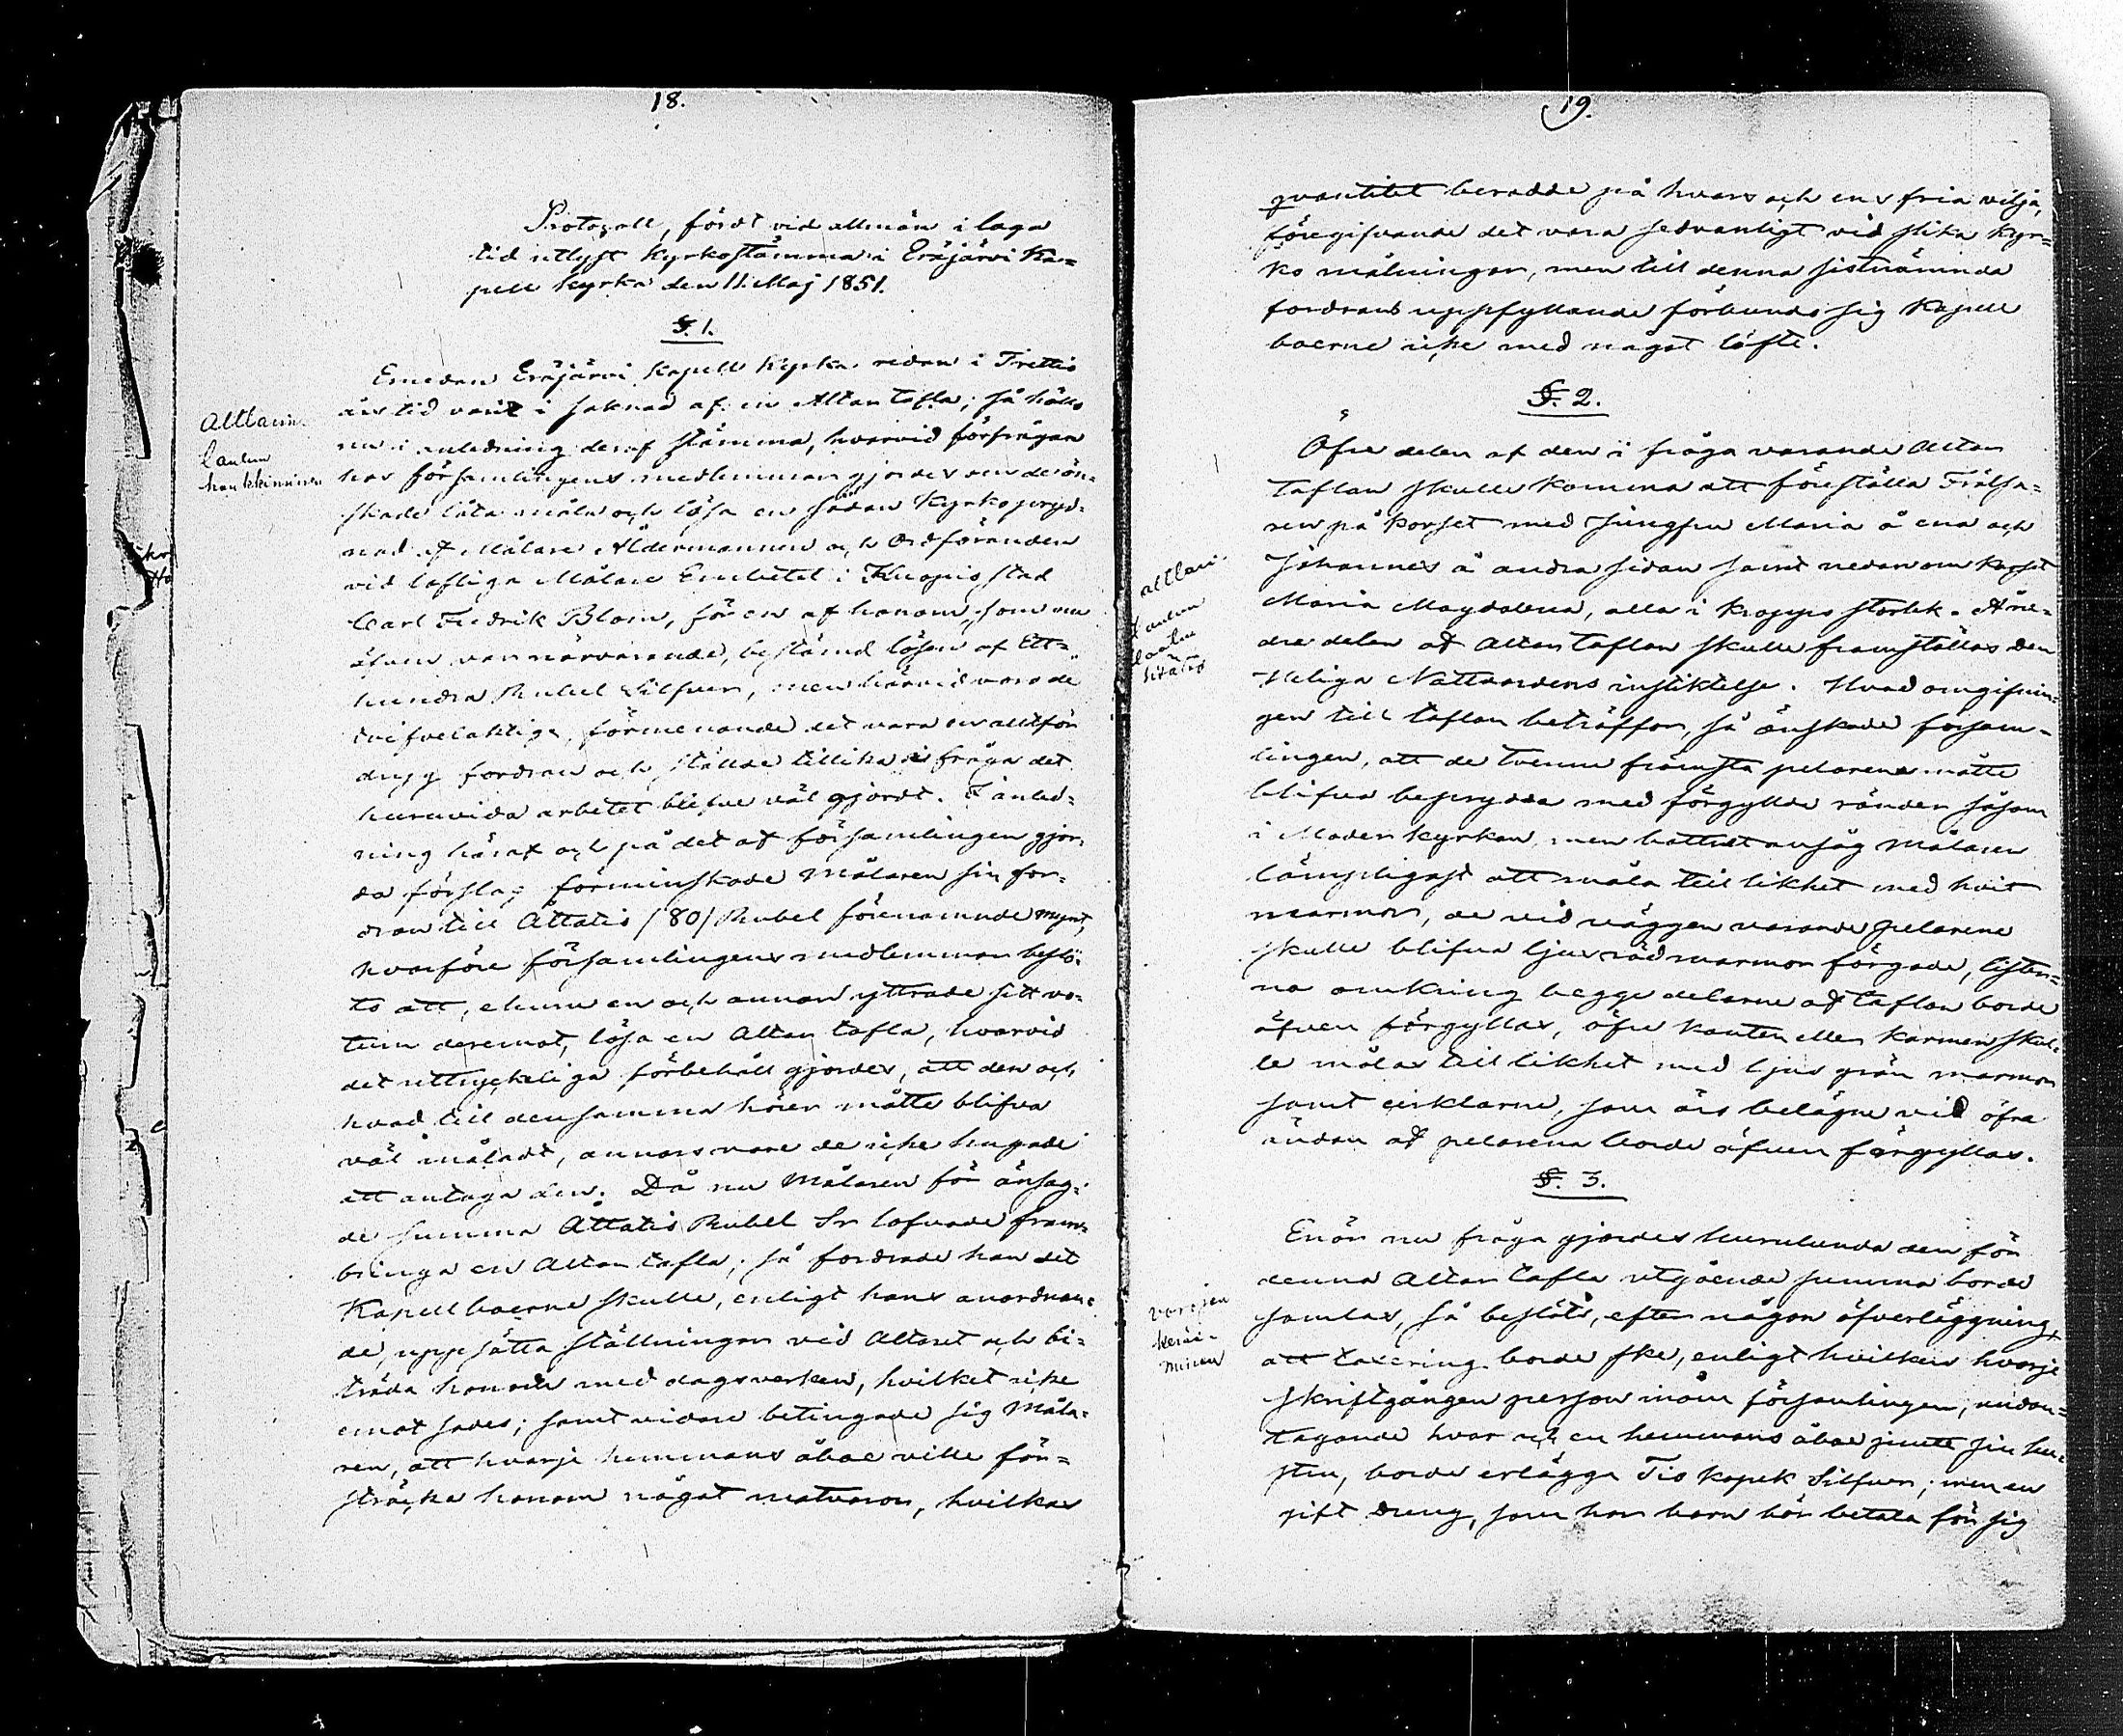 18.
Protocoll, fördt vid allmän i laga
tid utlyst Kyrkostämma i Eräjärvi Ka=
pell kyrka den 11. Maj 1851.
§. 1.
Emedan Eräjärvi Kapell Kyrka redan i Trettio
års tid varit i saknad af en Altar tafla; så hölls
nu i anledning deraf stämma, hvarvid förfrågan
hos församlingens medlemmar gjordes om de ön=
skade låta måla och lösa en sådan Kyrkopryd=
nad af Målare Åldermannen och Ordföranden
vid lofliga Målare Embetet i Kuopio stad
Carl Fredrik Blom, för en af honom, som nu
äfven var närvarande, bestämd lösen af Ett=
hundra Rubel Silfver, men härvid voro de
tvifvelaktige, förmenande det vara en alltför
dryg fordran och ställde tillika i fråga det
huruvida arbetet blefve väl gjordt. I anled=
ning häraf och på det af församlingen gjor=
da förslag förminskade Målaren sin for=
dran till Åttatio /80/ Rubel förenämnde mynt,
hvarföre församlingens medlemmar beslö=
to att, ehuru en och annan yttrade sitt vo=
tum deremot, lösa en Altar tafla, hvarvid
det uttryckeliga förbehåll gjordes, att den och
hvad till densamma hörer måtte blifva
väl måladt, annars vore de icke hugade
att antaga den. Då nu Målaren för ofvansag=
de summa Åttatio Rubel Sr lofvade fram=
bringa en Altar tafla; så fordrade han det
Kapellboerne skulle, enligt hans anordnan=
de, uppsätta ställningar vid Altaret och bi=
träda honom med dagsverken, hvilket icke
emot sades; samt vidare betingade sig Måla=
ren, att hvarje hemmans åboe ville för=
sträcka honom något matvaror, hvilkas
Alttarin
Taulun
hankkiminen
19.
qvantitet berodde på hvars och ens fria vilja,
föregifvande det vara sedvanligt vid slika Kyr=
ko målningar, men till denna sistnämnda
fordrans uppfyllande förbundo sig Kapell
boerne icke med något löfte.
§. 2.
Öfre delen af den i fråga varande Altar
taflan skulle komma att föreställa Frälsa=
ren på korset med Jungfru Maria å ena och
Johannes å andra sidan samt nedanom korset
Maria Magdalena, alla i kropps storlek. A ne=
dre delen af Altar taflan skulle framställas den
Heliga Nattvardens instiktelse. Hvad omgifnin=
gen till taflan beträffar, så önskade försam=
lingen, att de tvenne främsta pelarene måtte
blifva beprydda med förgyllda ränder såsom
i Moder kyrkan, men bottnet ansåg Målaren
lämpligast att måla till likhet med hvit
marmor, de vid väggen varande pelarene
skulle blifva ljusröd marmor färgade, lister=
na omkring begge delarne af taflan borde
äfven förgyllas, öfre kanten eller karmen skul=
le målas till likhet med ljus grön marmor
samt cirklarne, som äro belägne vid öfra
ändan af pelarena borde äfven förgyllas.
§. 3.
Enär nu fråga gjordes hurulunda den för
denna Altar tafla utgående summa borde
samlas, så beslöts, efter någon öfverläggning,
att taxering borde ske, enligt hvilken hvarje
skriftgången person inom församlingen, undan=
tagande hvar och en hemmans åboe jemte sin hu=
stru, borde erlägga Tio kopek Silfver; men en
gift dreng, som har barn bör betala för sig
alttari
taulun
laatu
hinta
varojen
kerää-
minen